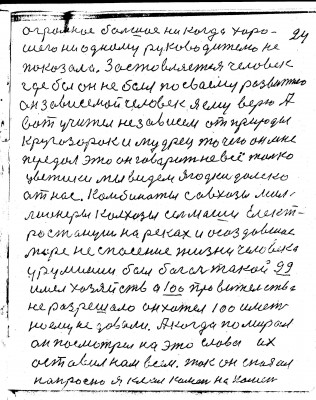 огромное большое никогда хоро- 24
шего ни одному руководителю не
показала. Заставляется человек
где бы он не был посваему развитию
он зависемой человек я ему верю А
вот учител независем от природы
Кругозорок и мудрец точно он мне
передал это он говарит не всё толко
цветики мы ведем ягодки далеко
от нас. Камбинаты савхозы мил-
лионеры колхозы селмаши Електр-
ростанции на реках и создовшае
море не спасение жизни человека
у румынии был багач такой 99
имел хозяйств а 100 правителства
не разрешало он хотел 100 иметь
но ему не довали. А когда помирал
он посмотрел на это слова их
оставил нам всем. так он сказал
напрасно я клал камен на камен